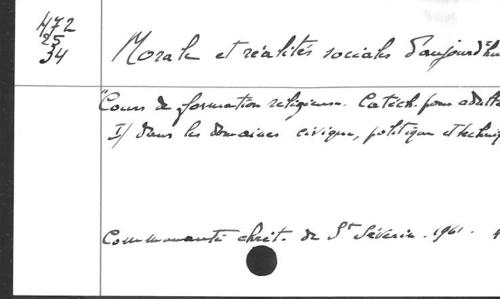 472
25
34
Morale et réalités sociales d'aujourd'hui
"Cours de formation religieuse. Catéch. pour adulte
I/ dans les domaines civique, politique et techniq
Communauté chrét. de St Séverin. 1961.